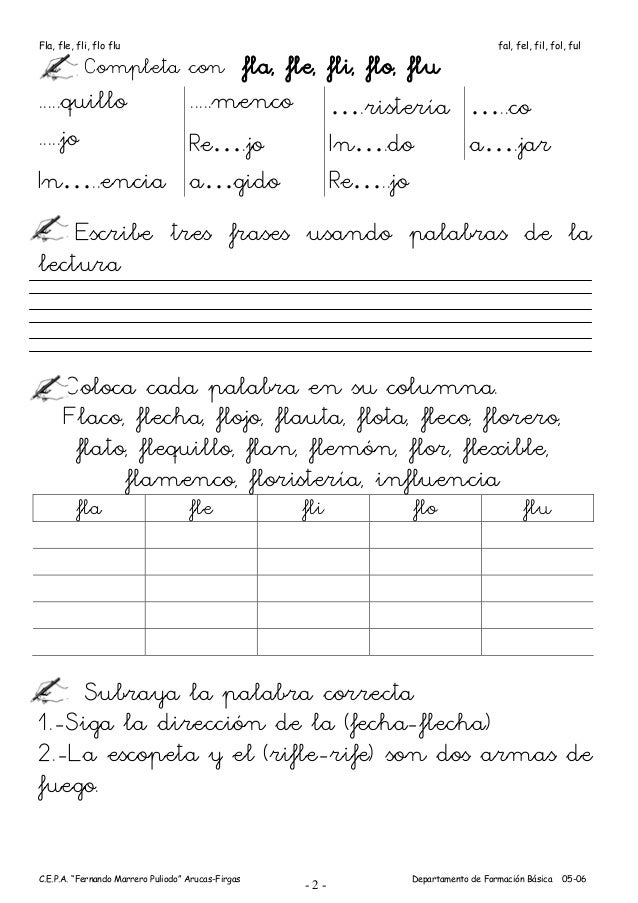 Fla, fle, fli, flo flu fal, fel, fil, fol, ful
Completa con fla, fle, fli, flo, flu
.....quillo .....menco ....ristería .....co
.....jo Re....jo In....do a....jar
In.....encia a...gido Re.....jo
Escribe tres frases usando palabras de la
lectura
Coloca cada palabra en su columna.
Flaco, flecha, flojo, flauta, flota, fleco, florero,
flato, flequillo, flan, flemón, flor, flexible,
flamenco, floristería, influencia
fla fle fli flo flu
Subraya la palabra correcta
1.-Siga la dirección de la (fecha-flecha)
2.-La escopeta y el (rifle-rife) son dos armas de
fuego.
C.E.P.A. "Fernando Marrero Puliodo" Arucas-Firgas - 2 - Departamento de Formación Básica 05-06